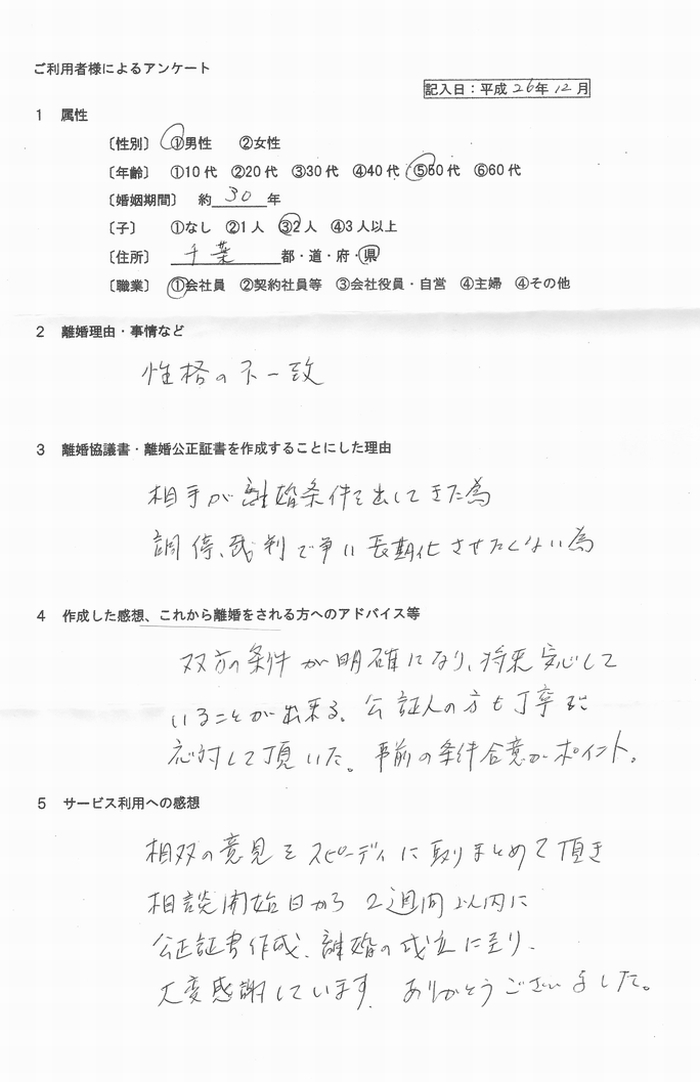 ご利用者様によるアンケート
記入日：平成26年12月
1 属性
〔性別〕 ①男性 ②女性
〔年齢〕 ①10代 ②20代 ③30代 ④40代 ⑤50代 ⑥60代
〔婚姻期間〕 約 30 年
〔子〕 ①なし ②1人 ③2人 ④3人以上
〔住所〕 千葉 都・道・府・県
〔職業〕 ①会社員 ②契約社員等 ③会社役員・自営 ④主婦 ④その他
2 離婚理由・事情など
性格の不一致
3 離婚協議書・離婚公正証書を作成することにした理由
相手が離婚条件を出してきた為
調停、裁判で争い長期化させたくない為
4 作成した感想、これから離婚をされる方へのアドバイス等
双方の条件が明確になり、将来安心して
いることが出来る。公証人の方も丁寧に
応対して頂いた。事前の条件合意がポイント。
5 サービス利用への感想
相双の意見をスピーディに取りまとめて頂き
相談開始日から2週間以内に
公正証書作成、離婚の成立に至り、
大変感謝しています。ありがとうございました。